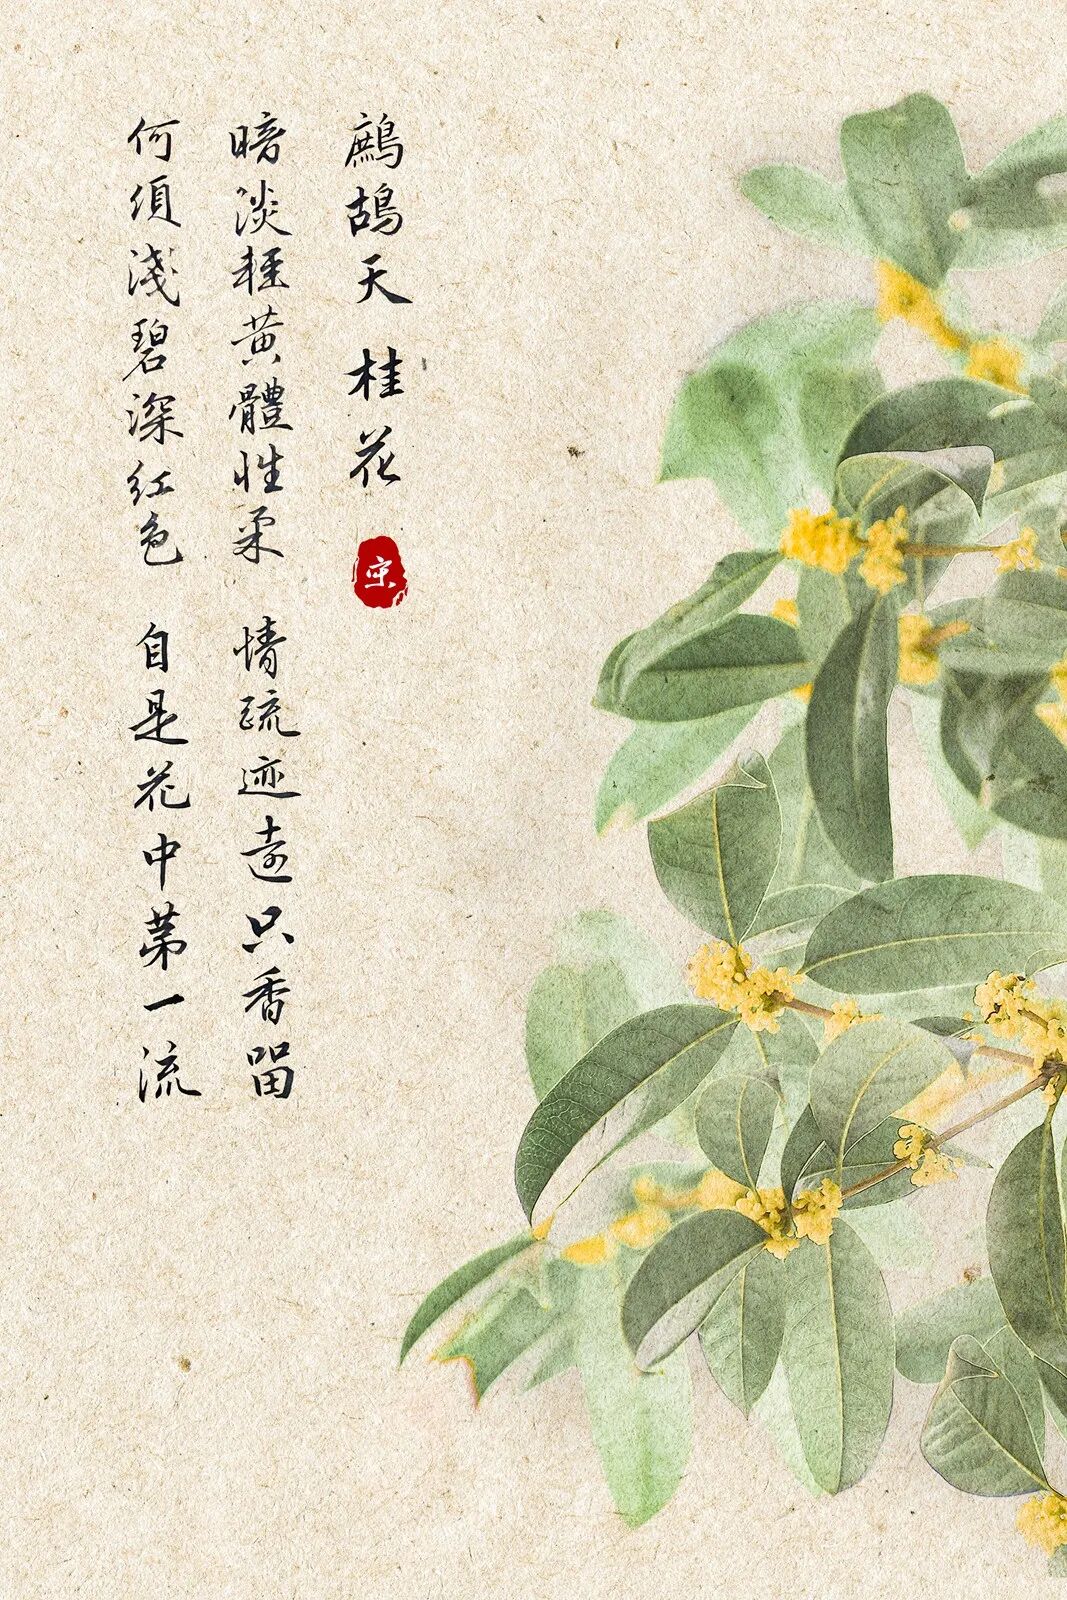 鷓鴣天 桂花
宋
暗淡輕黃體性柔 情疏迹遠只香留
何須淺碧深紅色 自是花中第一流